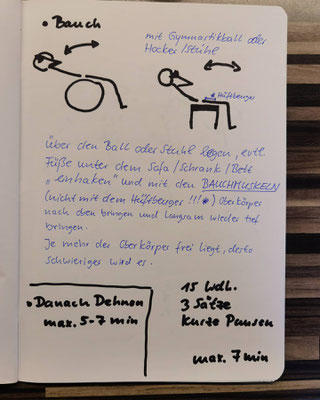 • Bauch
mit Gymnastikball oder
Hocker/Stuhl
Hüftbeuger
Über den Ball oder Stuhl legen, evtl.
Füße unter dem Sofa/Schrank/Bett
„einhaken" und mit den BAUCHMUSKELN
(nicht mit dem Hüftbeuger!!!*) Oberkörper
nach oben bringen und langsam wieder tief
bringen.
Je mehr der Oberkörper frei liegt, desto
schwieriger wird es.
• Danach Dehnen
max. 5-7 min
15 Wdl.
3 Sätze
Kurze Pausen
max. 7 min